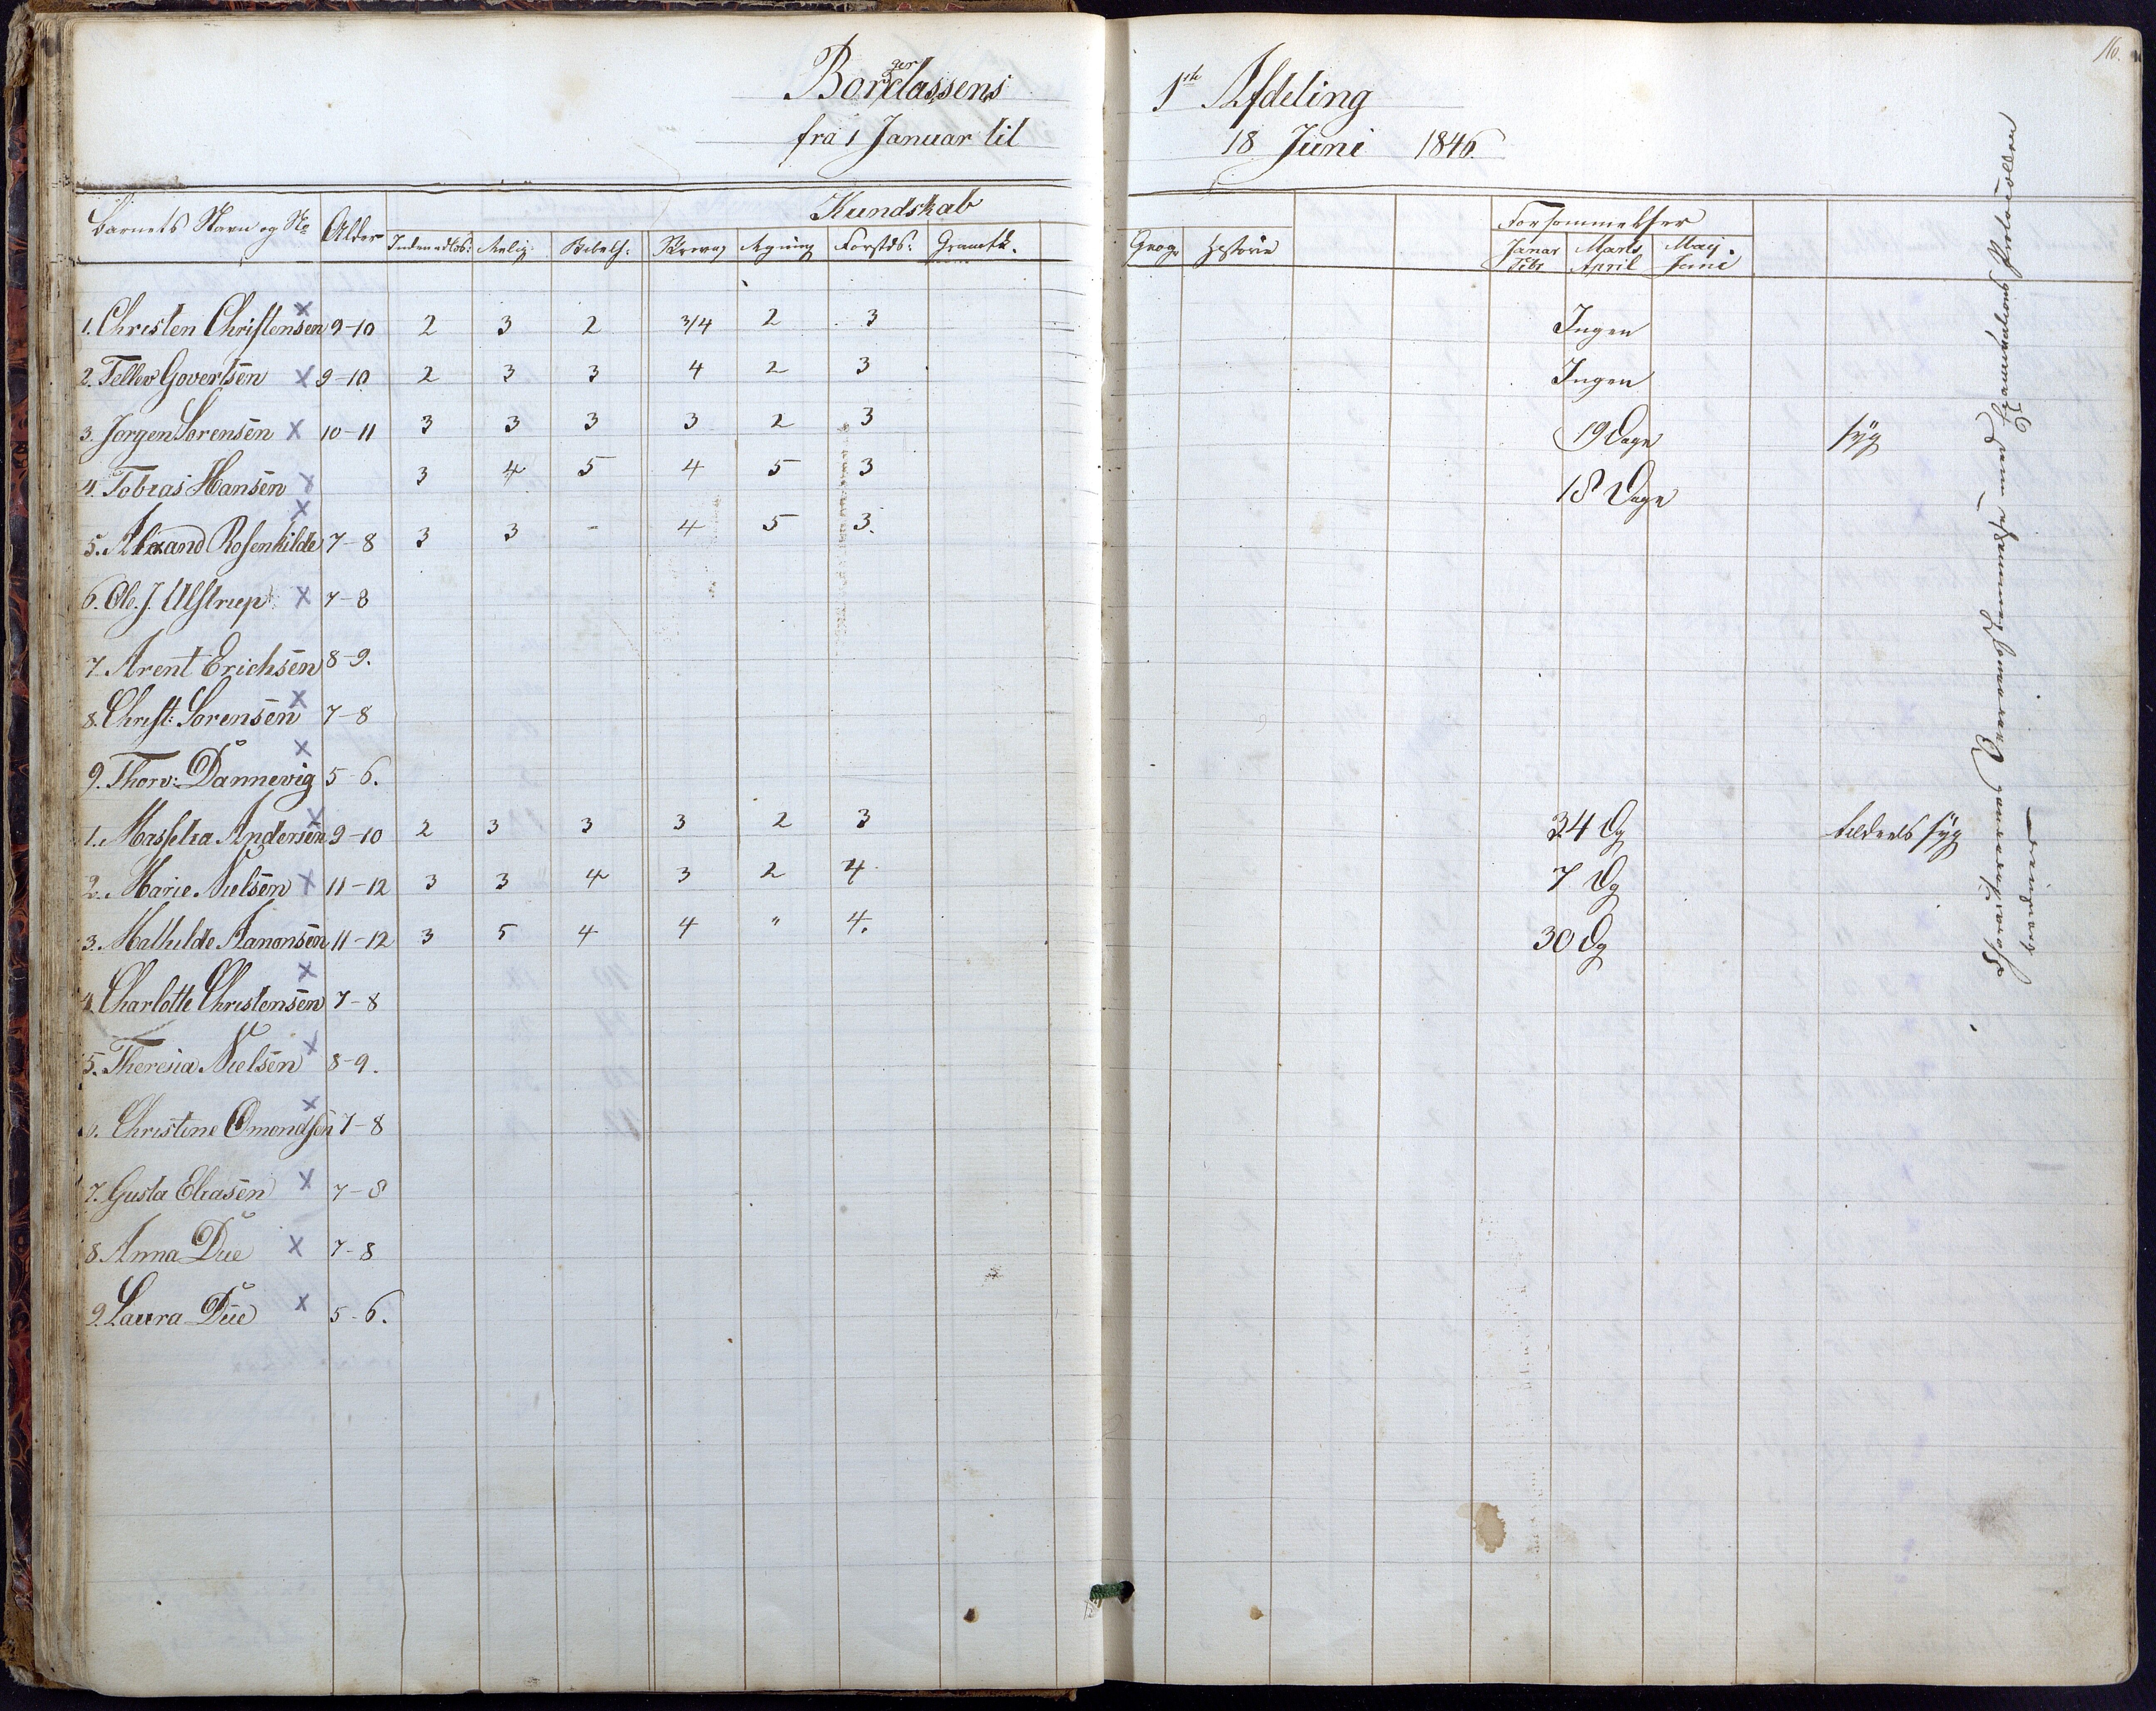 16.
Borgerclassens 1ste Afdeling
fra 1 Januar til 18 Juni 1846.
Barnets Navn og No Alder Kundskab Forsømmelser
Indenadlæs: Relig: Bibelh: Skrivng Regning Forstds: Gramtk. Geogr Historie Januar Febr Marts April Maij Juni
1. Christen Christensen x 9-10 2 3 2 3/4 2 3 Ingen
2. Tellev Govertsen x 9-10 2 3 3 4 2 3 Ingen
3. Jørgen Sørensen x 10-11 3 3 3 3 2 3 19 Dage syg
4. Tobias Hansen x 3 4 5 4 5 3 18 Dage
5. Rosenkilde x 7-8 3 3 - 4 5 3.
6. Ole. J. Ulstrup x 7-8
7. Arent Erichsen 8-9.
8. Christ: Sørensen x 7-8
9. Thorv: Dannevig x 5-6.
1. Andersen x 9-10 2 3 3 3 2 3 34 Dg tildeels syg
2. Marie Nielsen x 11-12 3 3 4 3 2 4 7 Dg
3. Mathilde Aanonsen 11-12 3 5 4 4 " 4. 30 Dg
4. Charlotte Christensen x 7-8
5. Theresia Nielsen x 8-9.
6. Christine Omondsen x 7-8
7. Gusta Eliasen x 7-8
8. Anna Due x 7-8
9. Laura Due x 5-6.
Examinations Protocollen
Dannevig